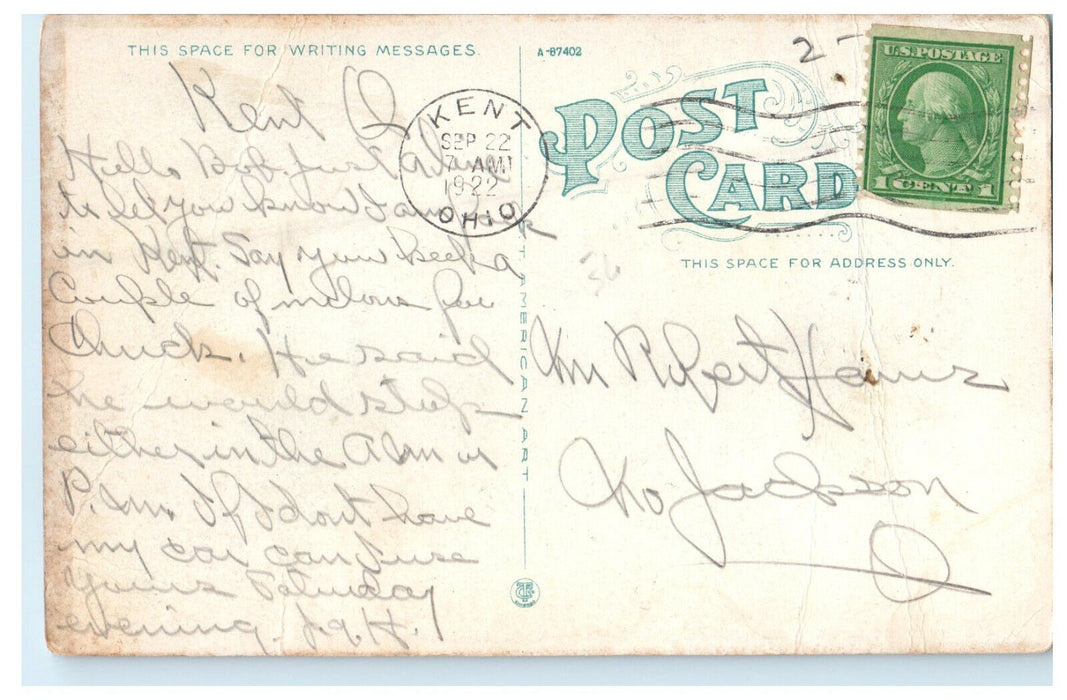 THIS SPACE FOR WRITING MESSAGES.
Kent O
Hello Bob. Just a
to let you know I am
in Kent. Say you keep a
Couple of melons for
Chuck. He said
he would stop
either in the A.M or
P.M. If I dont have
my car can I use
yours Saturday
evening. J.A.H.
A-87402
POST CARD
KENT
SEP 22
7 AM
1922
OHIO
U.S. POSTAGE
1 CENT 1
2 -
36
THIS SPACE FOR ADDRESS ONLY.
AMERICAN ART
Robert
No Jackson
O